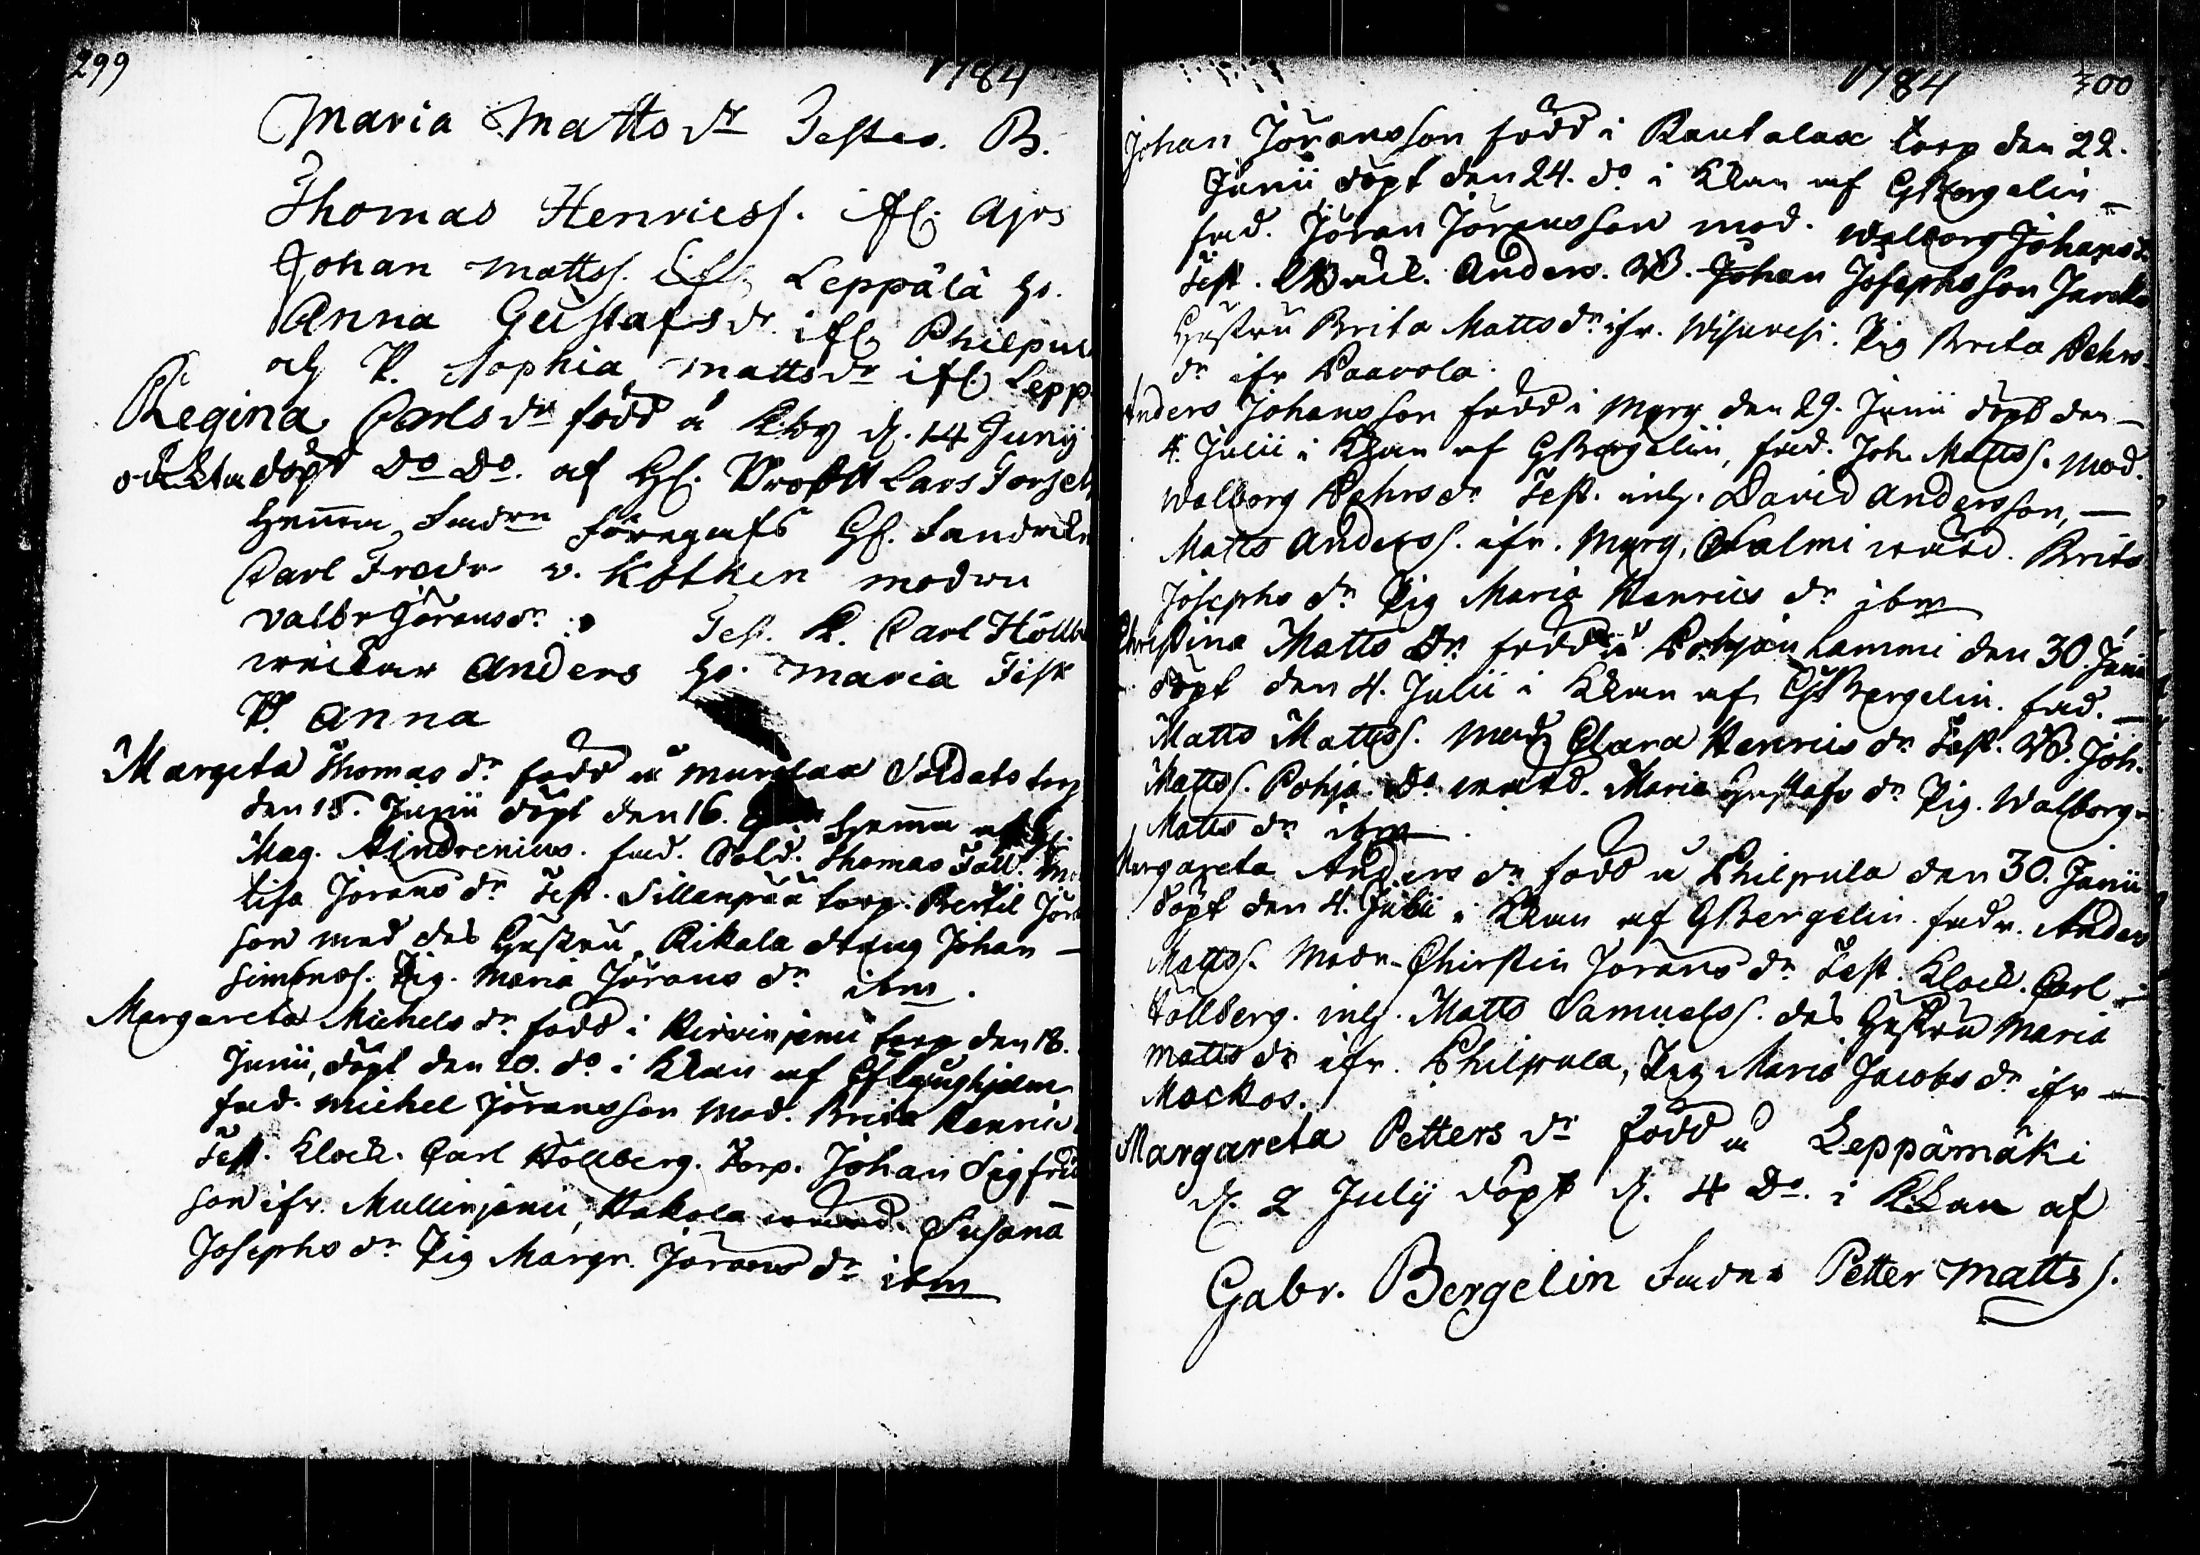 299 1784
Maria Matts dr Testes. B.
Thomas Henricss. ifr. Ajos
Johan Mattss. ifr. Leppälä H.
Anna Gustafs dr. ifr. Philpul
och P. Sophia Matts dr ifr. Lepp
Regina Carls dr född å Kby d. 14 Junij
oächta döpt Do Do. af H. Prosten Lars Forsel
hemma, fadren föregafs H. Fendrik
Carl Fredr v. Kothen modren
Valbr Görans dr. Tes. K. Carl Höllb
Anders H. Maria Fisk
P. Anna
Margeta Thomas dr född å Murolax Soldats torp
den 15. Junii döpt den 16. hemma af
Mag. Alindrenius. fad. Sold. Thomas Fall.
Lisa Jörans dr Test. Sillanpää torp. Bertil Jör
son med des Hustru, Rikala dräng Johan —
Simonss. Pig. Maria Jörans dr ibm.
Margareta Michels dr. född i torp den 18.
Junii, döpt den 20. do i Kkan af
fad. Michel Jöransson Mod. Brita Henrics
Test. Klock. Carl Höllberg. Torp. Johan Sigfrid
son ifr. Mullinjemi, Hakola Susana
Josephs dr Pig Margr. Jörans dr ibm
1784 300
Johan Jöransson född i Rautalax torp den 22.
Junii döpt den 24. do i Kkan af GBergelin —
fad. Jöran Jöransson mod. Walborg Johans dr.
Test. Anders. B. Johan Josephsson
Hustru Brita Matts dr ifr. Wisuvesi. Pig Brita Pehrs
dr ifr Paavola.
Anders Johansson född i Myry den 29. Junii döpt den —
4. Julii i Kkan af GBergelin, fad. Joh. Mattss. Mod.
Walborg Pehrs dr Test. inh. David Andersson, —
Matts Anderss. ifr. Myry, Salmi Brita
Josephs dr Pig Maria Henrics dr ibm
Christina Matts dr född å Pohjanlammi den 30. Junii
döpt den 4. Julii i Kkan af GBergelin. fad. —
Matts Mattss. Mod. Clara Henrics dr Test. B. Joh.
Mattss. Pohja. do Maria Gustafs dr Pig. Walborg
Matts dr ibm.
Margareta Anders dr född å Philpula den 30. Junii
döpt den 4. Julii i Kkan af GBergelin. fadr. Anders
Mattss. Modr. Chirstin Jörans dr Test. Klock. Carl
Höllberg. inh. Matts Samuelss. des Hustru Maria
Matts dr ifr. Philpula, Pig Maria Jacobs dr ifr —
Mackos.
Margareta Petters dr född å Leppämäki
d. 2 Julij döpt d. 4 Do. i Kkan af
Gabr. Bergelin fadren Petter Mattss.